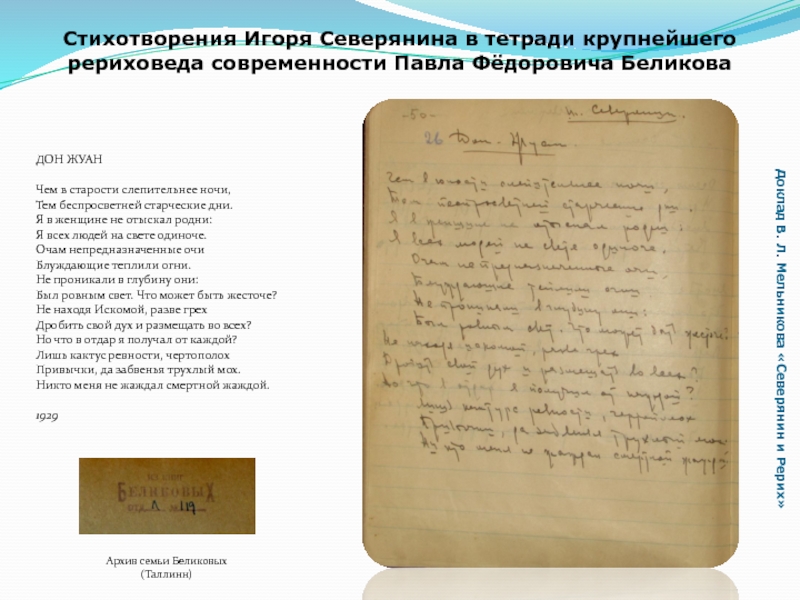 Стихотворения Игоря Северянина в тетради крупнейшего
рериховеда современности Павла Фёдоровича Беликова
ДОН ЖУАН
Чем в старости слепительнее ночи,
Тем беспросветней старческие дни.
Я в женщине не отыскал родни:
Я всех людей на свете одиноче.
Очам непредназначенные очи
Блуждающие теплили огни.
Не проникали в глубину они:
Был ровным свет. Что может быть жесточе?
Не находя Искомой, разве грех
Дробить свой дух и размещать во всех?
Но что в отдар я получал от каждой?
Лишь кактус ревности, чертополох
Привычки, да забвенья трухлый мох.
Никто меня не жаждал смертной жаждой.
1929
БЕЛИКОВЫХ
Л 119
Архив семьи Беликовых
(Таллинн)
-50-
И. Северянин.
26 Дон-Жуан.
Чем в юности слепительнее ночи,
Тем беспросветней старческие дни.
Я в женщине не отыскал родни:
Я всех людей на свете одиноче.
Очам непредназначенные очи
Блуждающие теплили огни
Не проникали в глубину они:
Был ровным свет. Что может быть жесточе?
Не находя искомой, разве грех
Дробить свой дух и размещать во всех?
Но что в отдар я получал от каждой?
Лишь кактус ревности, чертополох
Привычки, да забвенья трухлый мох
Никто меня не жаждал смертной жаждой
Доклад В. Л. Мельникова «Северянин и Рерих»